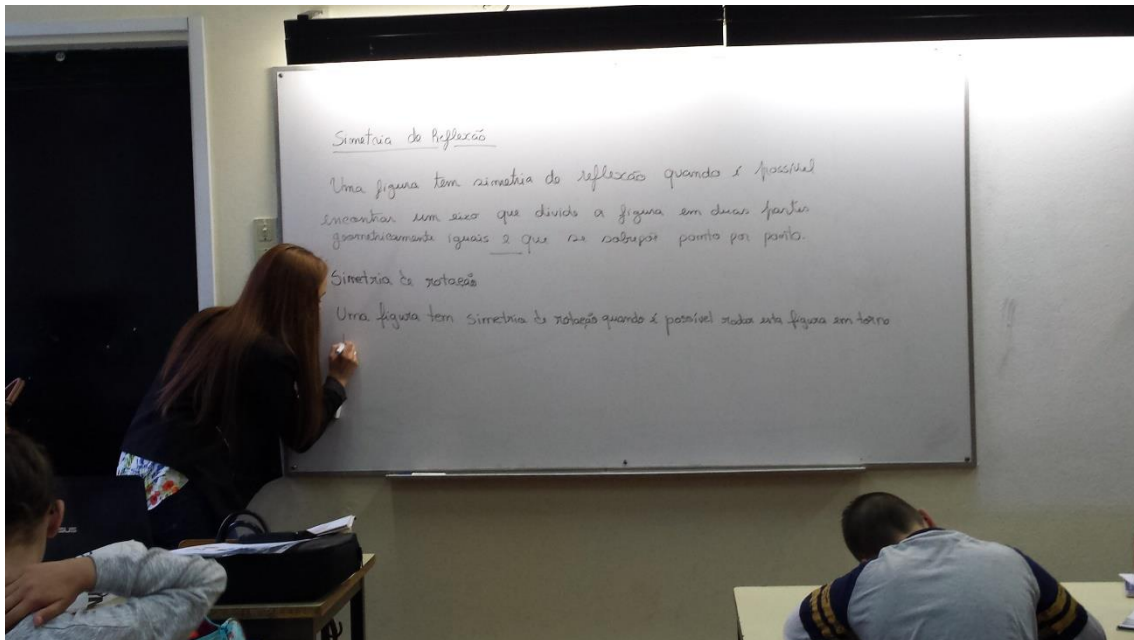 Simetria de Reflexão
Uma figura tem simetria de reflexão quando é possível
encontrar um eixo que divide a figura em duas partes
geometricamente iguais e que se sobupõe ponto por ponto.
Simetria de rotação
Uma figura tem simetria de rotação quando é possível rodar esta figura em torno
SUS